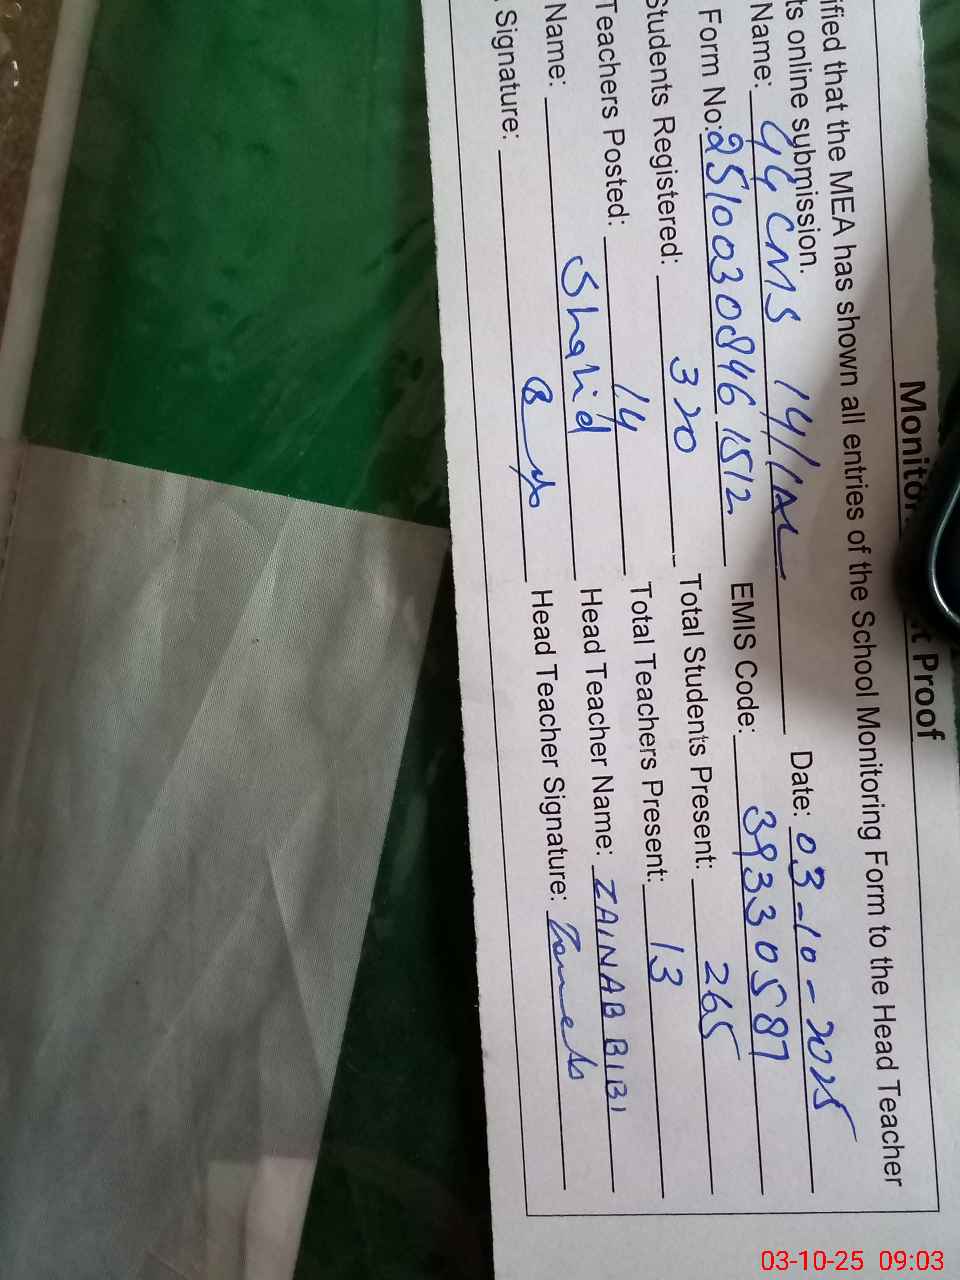 Monitor t Proof
ified that the MEA has shown all entries of the School Monitoring Form to the Head Teacher
ts online submission.
Name: GG CMS 14/1AL Date: 03-10-2025
Form No: 2510030846 1512 EMIS Code: 39330587
Students Registered: 320 Total Students Present: 265
Teachers Posted: 14 Total Teachers Present: 13
Name: Shahid Head Teacher Name: ZAINAB BIBI
Signature: Head Teacher Signature:
03-10-25 09:03